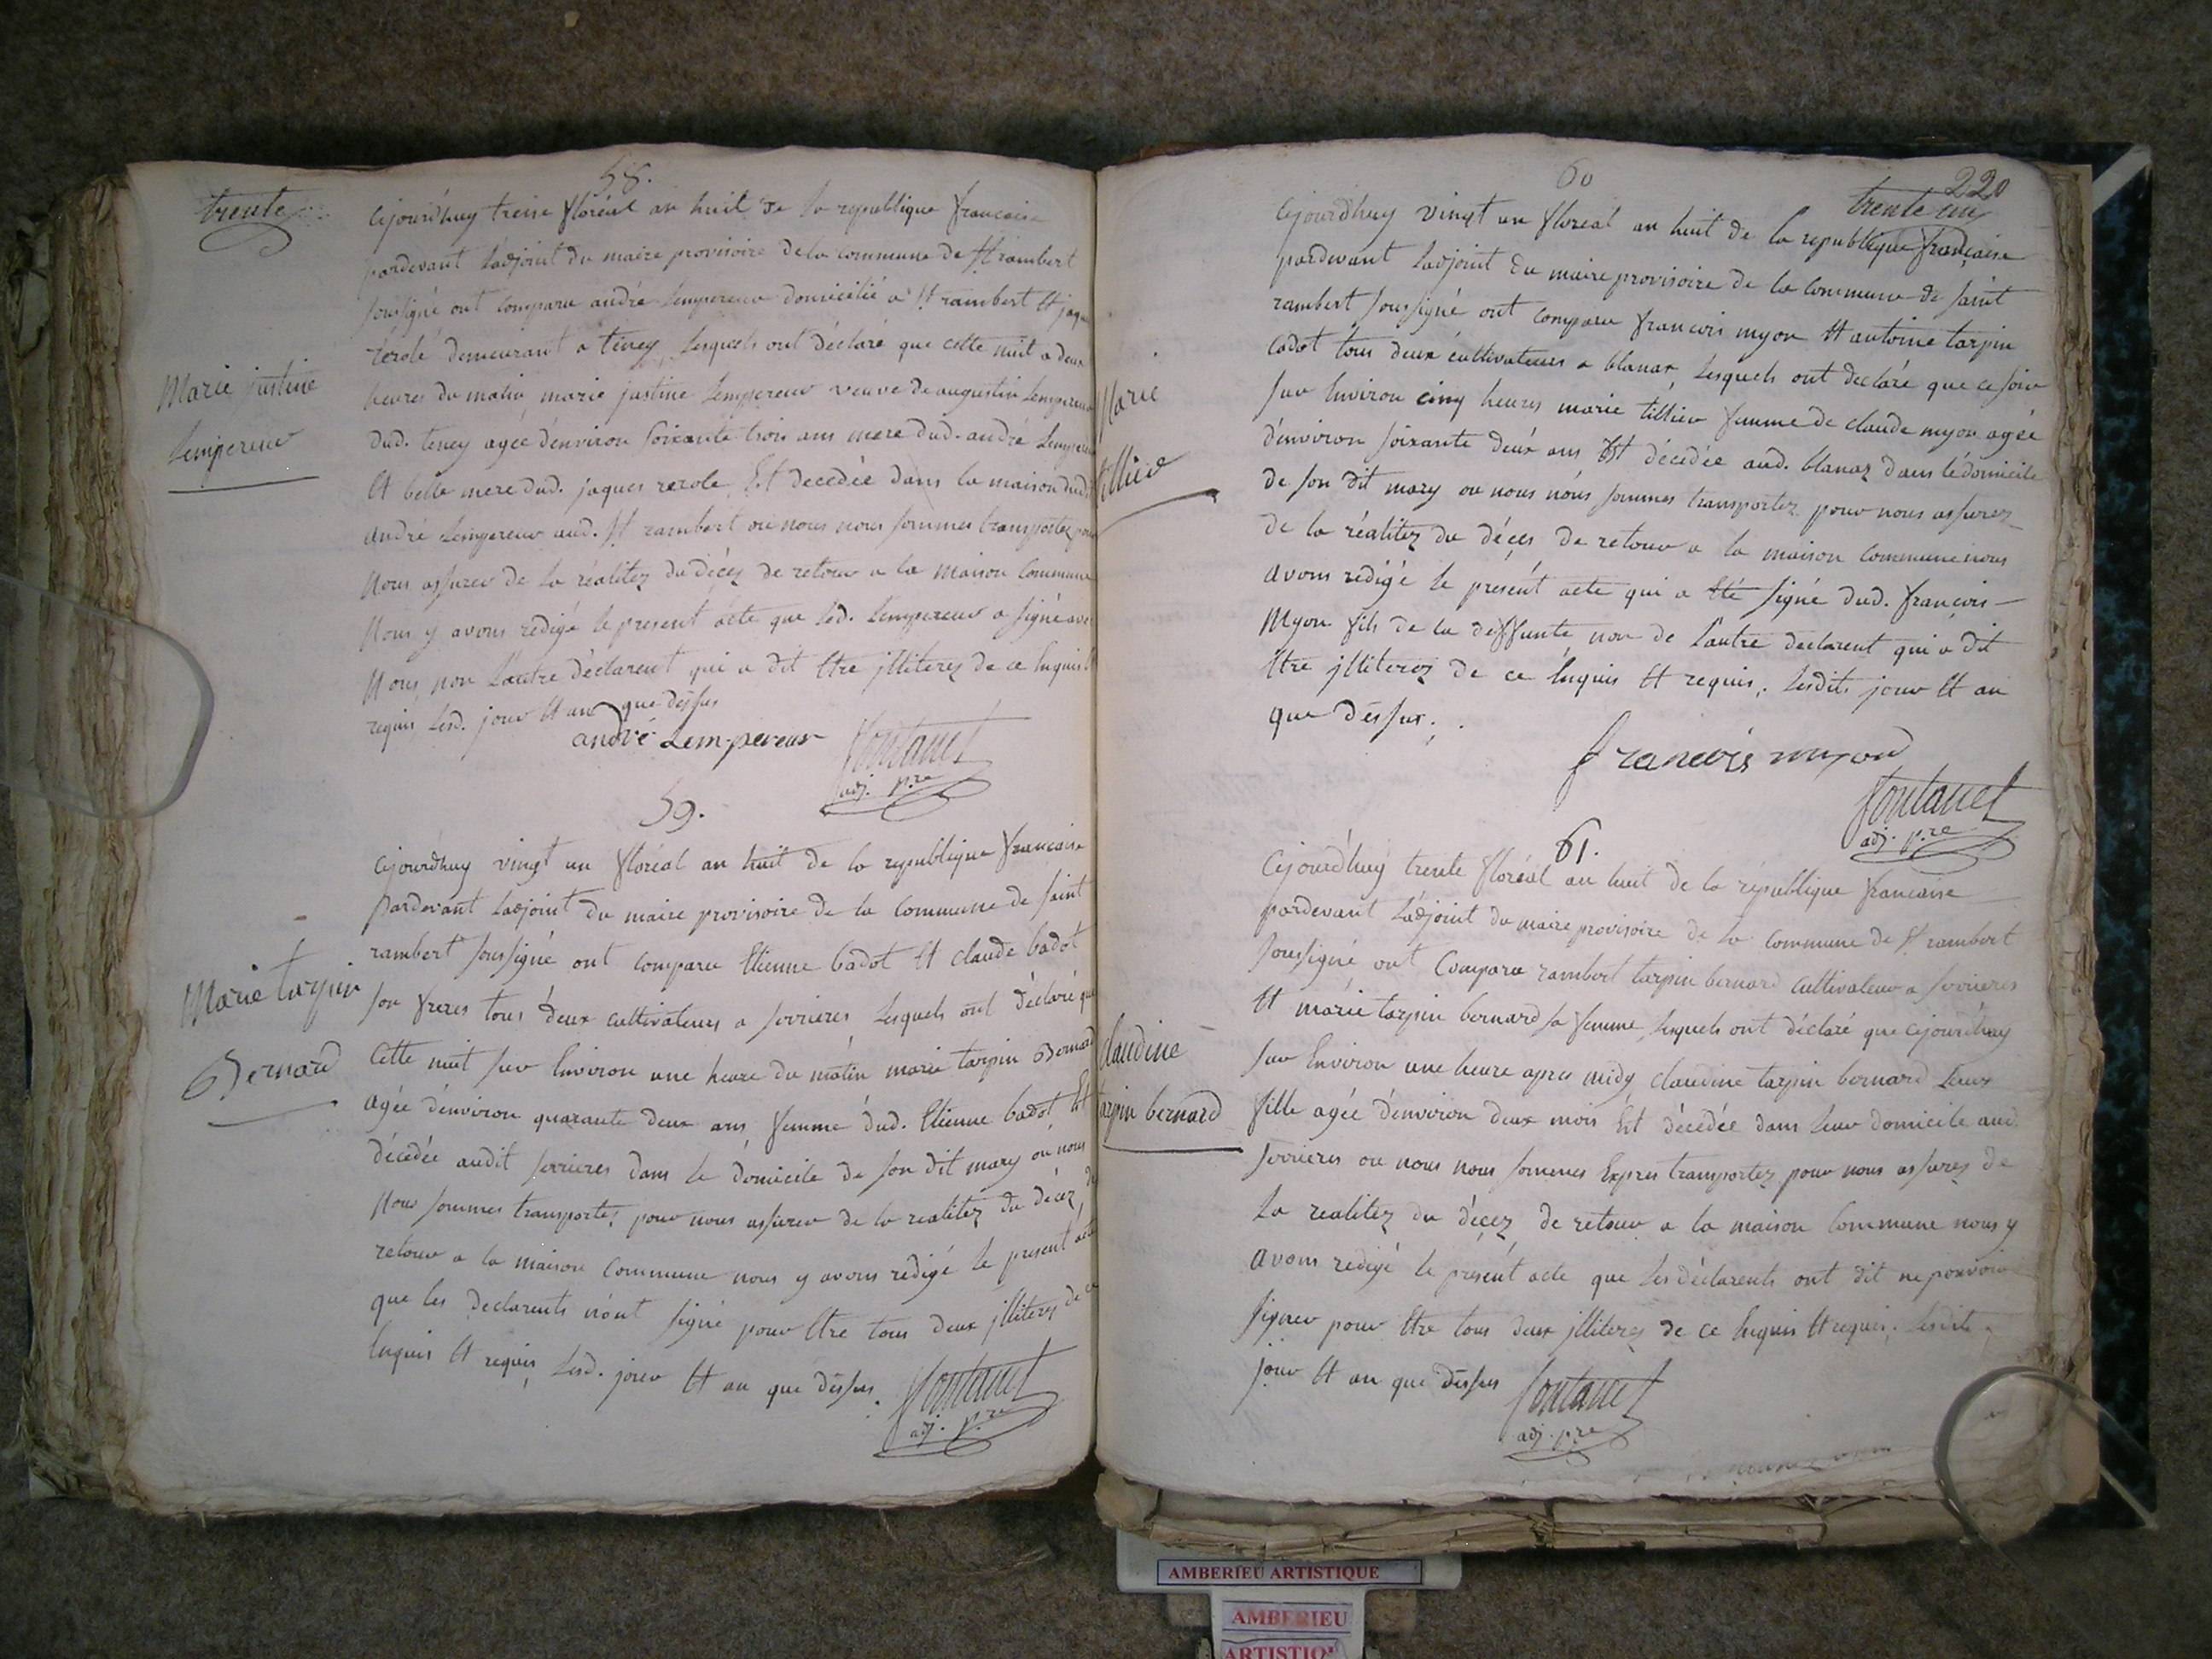 trente
58.
Cejourd'huy treise floréal an huit de la republique francaise
pardevant L'adjoint du maire provisoire de la commune de St rambert
soussigné ont comparu andré Lempereur domicilié a St rambert Et jaque
rerole demeurant a teney, Lesquels ont déclaré que cette nuit a deux
heures du matin, marie justine Lempereur veuve de augustin Lempereur
dud. teney agée d'environ soixante trois ans mere dud. andré Lempereur
Et belle mere dud. jaques rerole, Est decedée dans la maison dud.
andré Lempereur aud. St rambert ou nous nous sommes transportez pour
Nous assurer de la réalitez du décez de retour a la maison Commune
Nous y avons redigé le present acte que led. Lempereur a signé avec
Nous, non L'autre déclarent qui a dit Etre jlliterez de ce Enquis Et
requis Lesd. jour Et an que dessus
andré Lempereur
fontanet
adj. p.re
Marie justine
Lempereur
59.
Cejourd'huy vingt un floréal an huit de la republique francaise
pardevant L'adjoint du maire provisoire de la commune de saint
rambert soussigné ont comparu Etienne badot Et claude badot
son freres tous deux cultivateurs a serrieres Lesquels ont déclaré que
Cette nuit sur Environ une heure du matin marie tarpin Bernard
agée d'environ quarante deux ans, femme dud. Etienne badot Est
décédée audit serrieres dans le domicile de son dit mary ou nous
Nous sommes transportez pour nous assurer de la realitez du décez, de
retour a la maison Commune nous y avons redigé le present acte
que les declarents n'ont signé pour Etre tous deux jlliterez de ce
Enquis Et requis, Lesd. jour Et an que dessus.
fontanet
adj. p.re
Marie tarpin
Bernard
60
220
trente un
Cejourd'huy vingt un floréal an huit de la republique francaise
pardevant L'adjoint du maire provisoire de la commune de saint
rambert soussigné ont comparu francois myon Et antoine tarpin
cadot tous deux cultivateurs a blanaz, Lesquels ont declaré que ce soir
sur Environ cinq heures marie tillier femme de claude myon agée
d'environ soixante deux ans Est décedée aud. blanaz dans le domicile
de son dit mary ou nous nous sommes transportez pour nous assurez
de la réalitez du décés de retour a la maison commune nous
avons redigé le présent acte qui a Eté signé dud. françois
Myon fils de la deffunte, non de L'autre declarent qui a dit
Etre jlliterez de ce Enquis Et requis. Lesdits jour Et an
que dessus.
francois myon
fontanet
adj. p.re
Marie
tillier
61.
Cejourd'huy trente floréal an huit de la republique francaise
pardevant L'adjoint du maire provisoire de la commune de St rambert
soussigné ont Comparu rambert tarpin bernard Cultivateur a serrieres
Et marie tarpin bernard sa femme, Lesquels ont déclaré que cejourd'huy
sur Environ une heure apres midy claudine tarpin bernard Leur
fille agée d'environ deux mois Est décédée dans Leur domicile aud.
serrieres ou nous nous sommes Expres transportez pour nous assurez de
La realitez du décez, de retour a la maison Commune nous y
avons redigé le présent acte que Les déclarents ont dit ne pouvoir
signer pour Etre tous deux jlliterez de ce Enquis Et requis. Lesdits
jour Et an que dessus
fontanet
adj. p.re
Claudine
tarpin bernard
AMBERIEU ARTISTIQUE
AMBERIEU
ARTISTIQU